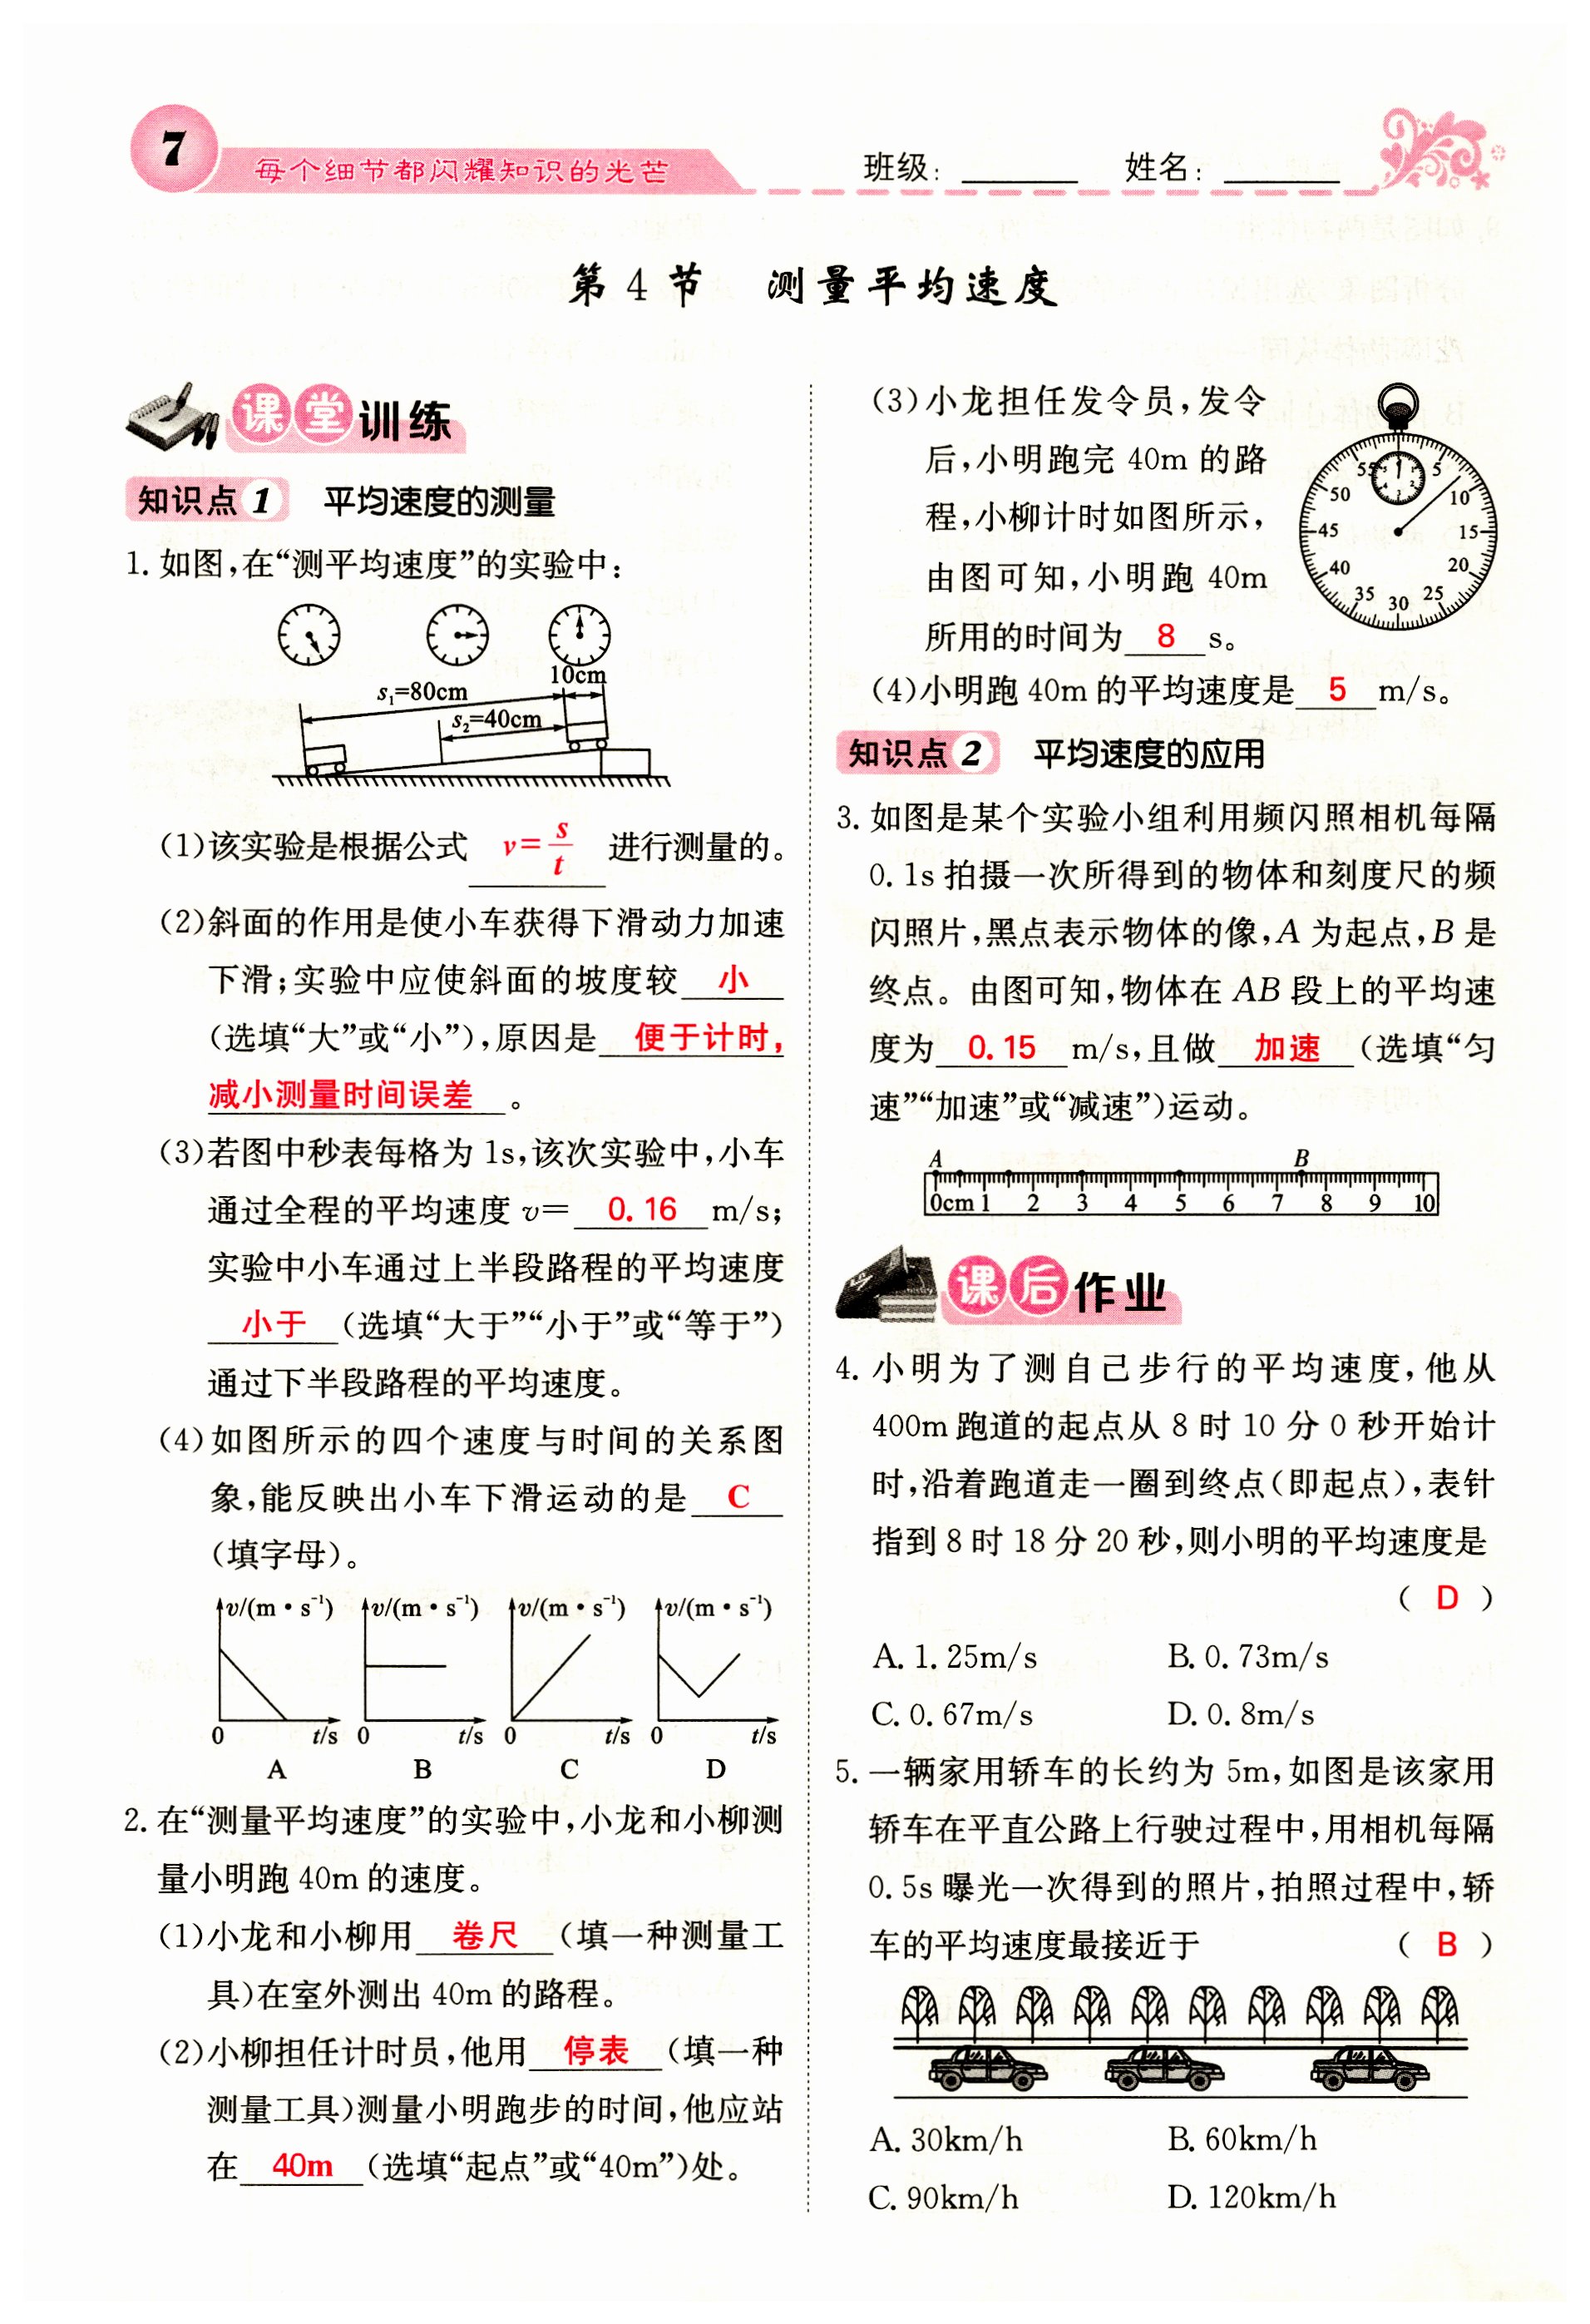 7
每个细节都闪耀知识的光芒
班级：
姓名：
第4节 测量平均速度
课堂训练
知识点1 平均速度的测量
1. 如图,在“测平均速度”的实验中:
10cm
s₁=80cm
s₂=40cm
(1)该实验是根据公式 v=s/t 进行测量的。
(2)斜面的作用是使小车获得下滑动力加速
下滑;实验中应使斜面的坡度较 小
(选填“大”或“小”),原因是 便于计时,
减小测量时间误差 。
(3)若图中秒表每格为 1s,该次实验中,小车
通过全程的平均速度 v= 0.16 m/s;
实验中小车通过上半段路程的平均速度
小于 (选填“大于”“小于”或“等于”)
通过下半段路程的平均速度。
(4)如图所示的四个速度与时间的关系图
象,能反映出小车下滑运动的是 C
(填字母)。
v/(m·s⁻¹) v/(m·s⁻¹) v/(m·s⁻¹) v/(m·s⁻¹)
0 t/s 0 t/s 0 t/s 0 t/s
A B C D
2. 在“测量平均速度”的实验中,小龙和小柳测
量小明跑 40m 的速度。
(1)小龙和小柳用 卷尺 (填一种测量工
具)在室外测出 40m 的路程。
(2)小柳担任计时员,他用 停表 (填一种
测量工具)测量小明跑步的时间,他应站
在 40m (选填“起点”或“40m”)处。
(3)小龙担任发令员,发令
后,小明跑完 40m 的路
程,小柳计时如图所示,
由图可知,小明跑 40m
所用的时间为 8 s。
55 5
50 10
45 15
40 20
35 30 25
(4)小明跑 40m 的平均速度是 5 m/s。
知识点2 平均速度的应用
3. 如图是某个实验小组利用频闪照相机每隔
0.1s 拍摄一次所得到的物体和刻度尺的频
闪照片,黑点表示物体的像,A 为起点,B 是
终点。由图可知,物体在 AB 段上的平均速
度为 0.15 m/s,且做 加速 (选填“匀
速”“加速”或“减速”)运动。
A B
0cm 1 2 3 4 5 6 7 8 9 10
课后作业
4. 小明为了测自己步行的平均速度,他从
400m 跑道的起点从 8 时 10 分 0 秒开始计
时,沿着跑道走一圈到终点(即起点),表针
指到 8 时 18 分 20 秒,则小明的平均速度是
( D )
A. 1.25m/s B. 0.73m/s
C. 0.67m/s D. 0.8m/s
5. 一辆家用轿车的长约为 5m,如图是该家用
轿车在平直公路上行驶过程中,用相机每隔
0.5s 曝光一次得到的照片,拍照过程中,轿
车的平均速度最接近于 ( B )
A. 30km/h B. 60km/h
C. 90km/h D. 120km/h